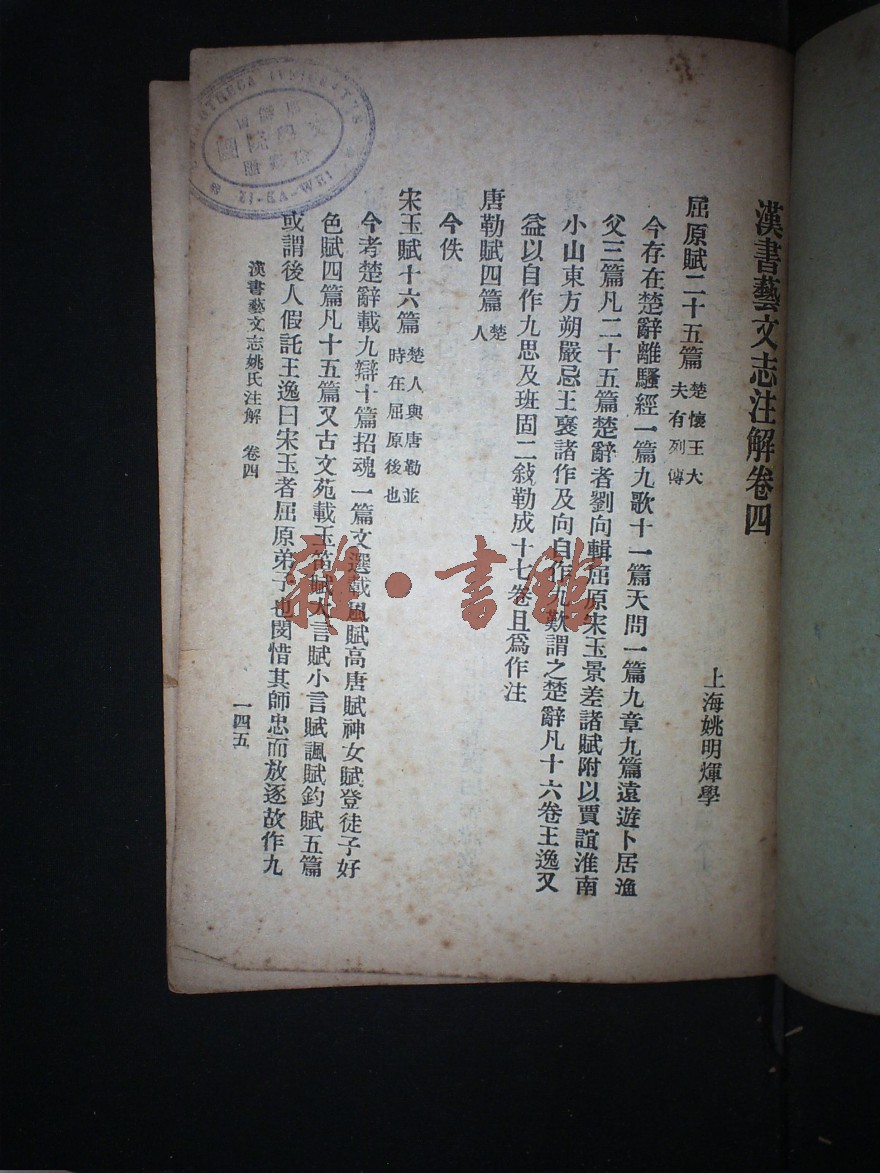 漢書藝文志注解卷四
上海姚明煇學
屈原賦二十五篇 楚懷王大夫有列傳
今存在楚辭離騷經一篇九歌十一篇天問一篇九章九篇遠遊卜居漁
父三篇凡二十五篇楚辭者劉向輯屈原宋玉景差諸賦附以賈誼淮南
小山東方朔嚴忌王襃諸作及向自作九歎謂之楚辭凡十六卷王逸又
益以自作九思及班固二敍勒成十七卷且爲作注
唐勒賦四篇 楚人
今佚
宋玉賦十六篇 楚人與唐勒並時在屈原後也
今考楚辭載九辯十篇招魂一篇文選載風賦高唐賦神女賦登徒子好
色賦四篇凡十五篇又古文苑載玉笛賦大言賦小言賦諷賦釣賦五篇
或謂後人假託王逸曰宋玉者屈原弟子也閔惜其師忠而放逐故作九
漢書藝文志姚氏注解 卷四
一四五
ZI-KA-WEI
雜·書館